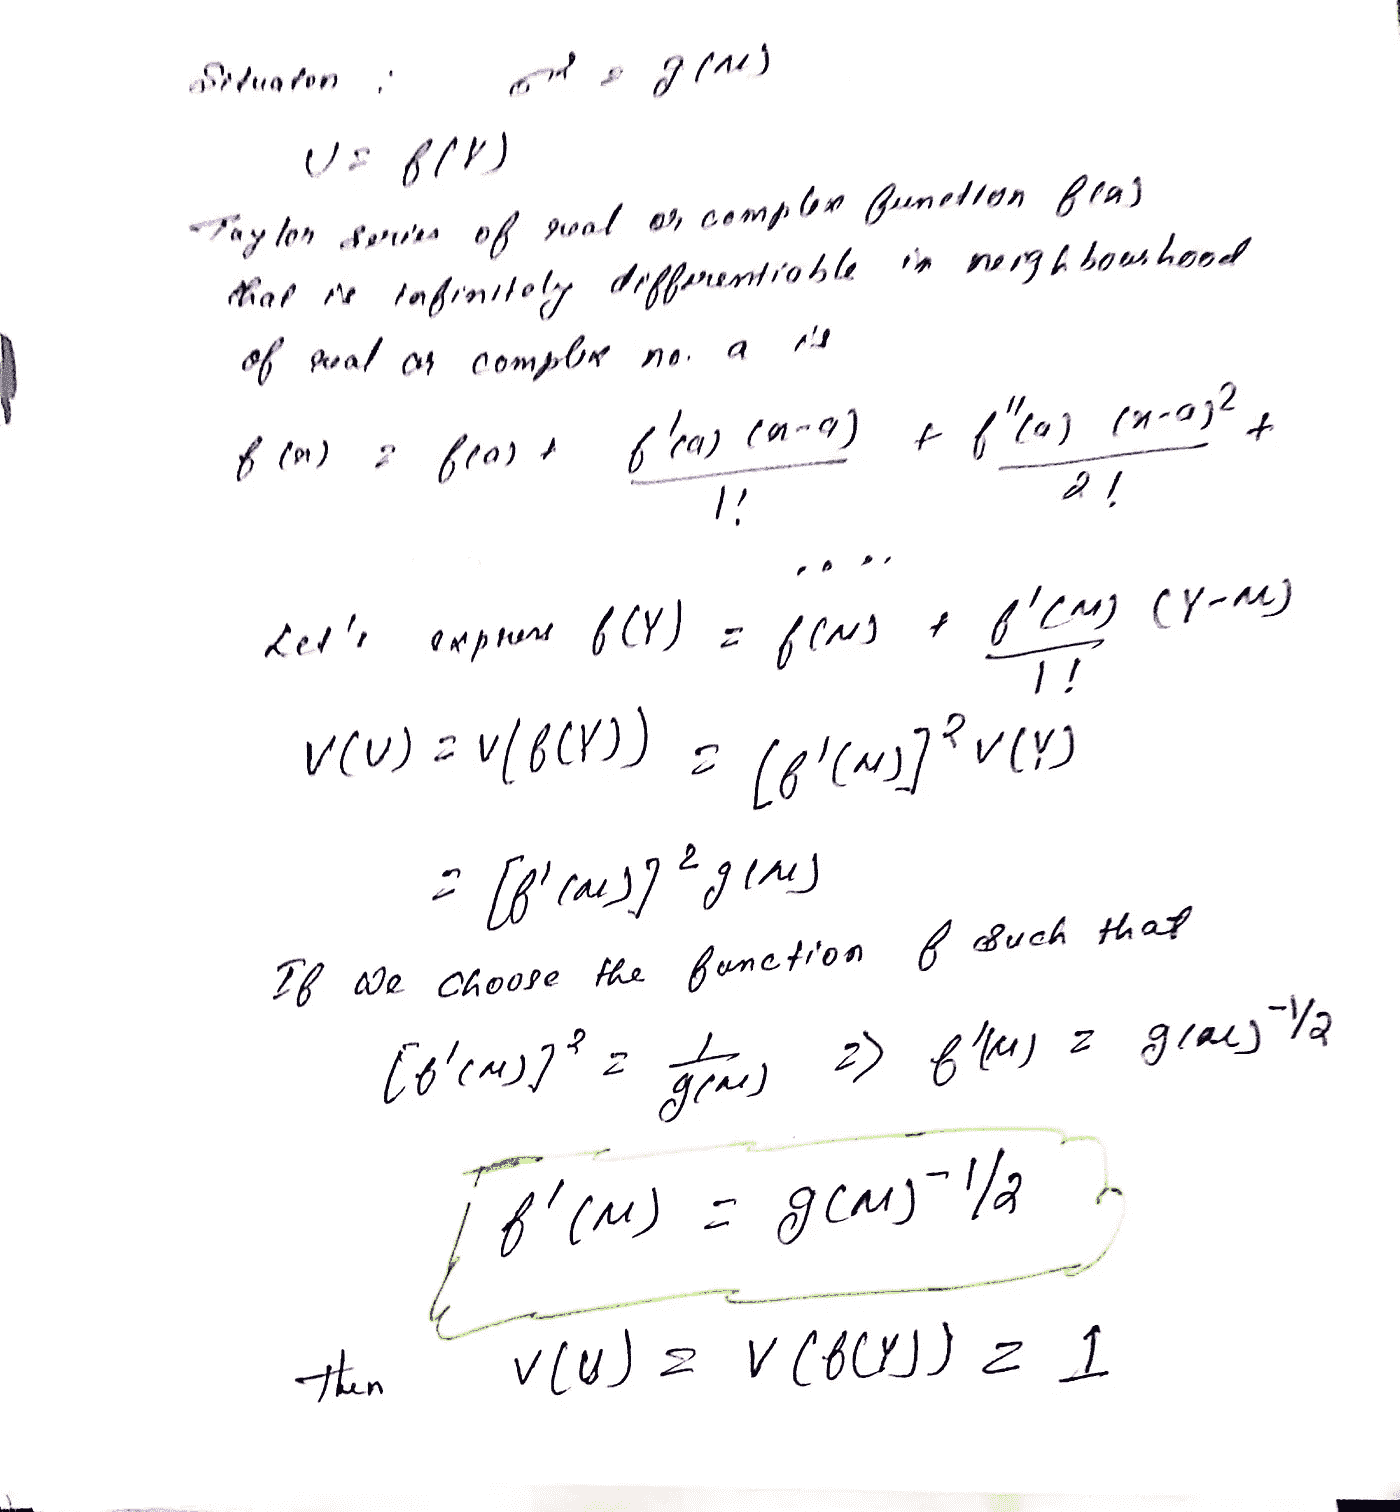 Situation : σ² = g(μ)
U = f(Y)
Taylor series of real or complex function f(a)
that is infinitely differentiable in neighbourhood
of real or complex no. a is
f(x) = f(a) + f'(a) (x-a)/1! + f''(a) (x-a)²/2! +
....
Let's express f(Y) = f(μ) + f'(μ) (Y-μ)/1!
V(U) = V(f(Y)) = [f'(μ)]² V(Y)
= [f'(μ)]² g(μ)
If we choose the function f such that
[f'(μ)]² = 1/g(μ) => f'(μ) = g(μ)^-1/2
f'(μ) = g(μ)^-1/2
then V(U) = V(f(Y)) = 1